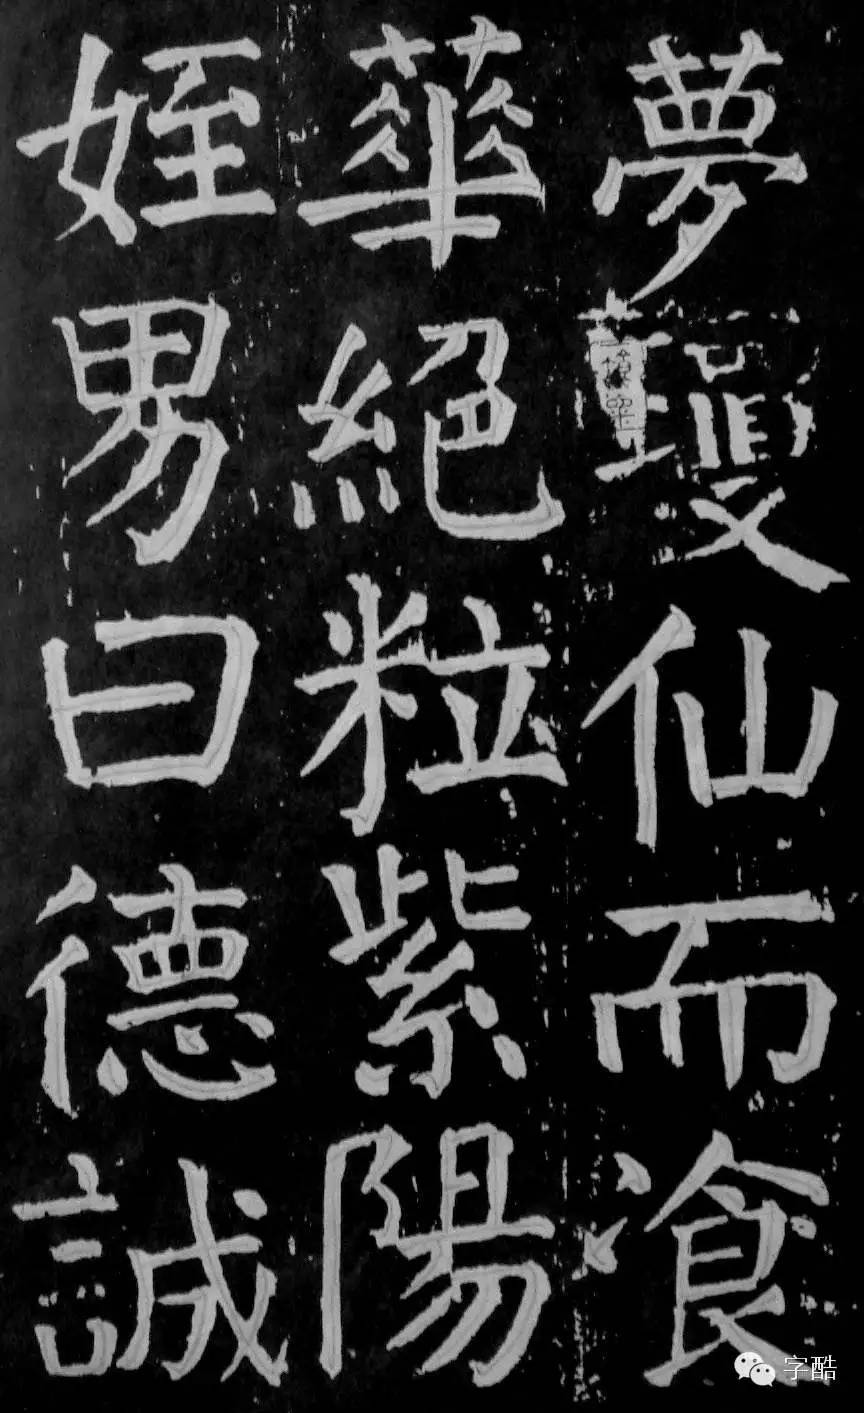 夢瓊仙而飡
華絕粒紫陽
姪男曰德誠
字酷